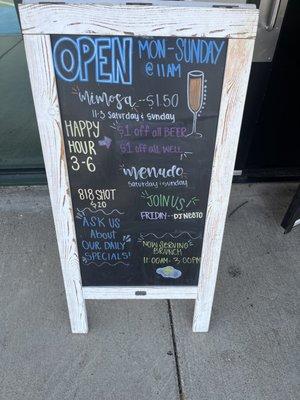 OPEN MON-SUNDAY
@ 11AM
Mimosa $1.50
11-3 Saturday & Sunday
HAPPY
HOUR
3-6
$1 off all BEER
$1 off all WELL
menudo
Saturday & Sunday
818 SHOT
$20
JOIN US!
FRIDAY - DJ NESTO
ASK US
About
OUR DAILY
SPECIALS!
NOW SERVING
BRUNCH
11:00AM - 3:00PM